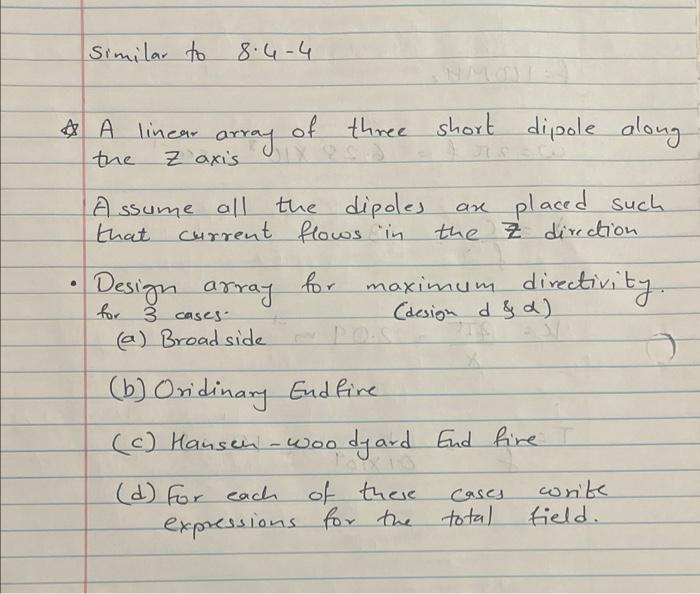 Similar to 8.4-4
☆ A linear array of three short dipole along
the Z axis
Assume all the dipoles are placed such
that current flows in the Z direction
• Design array for maximum directivity.
for 3 cases. (design d & α)
(a) Broad side
(b) Oridinary Endfire
(c) Hansen-woodyard End fire
(d) For each of these cases write
expressions for the total field.